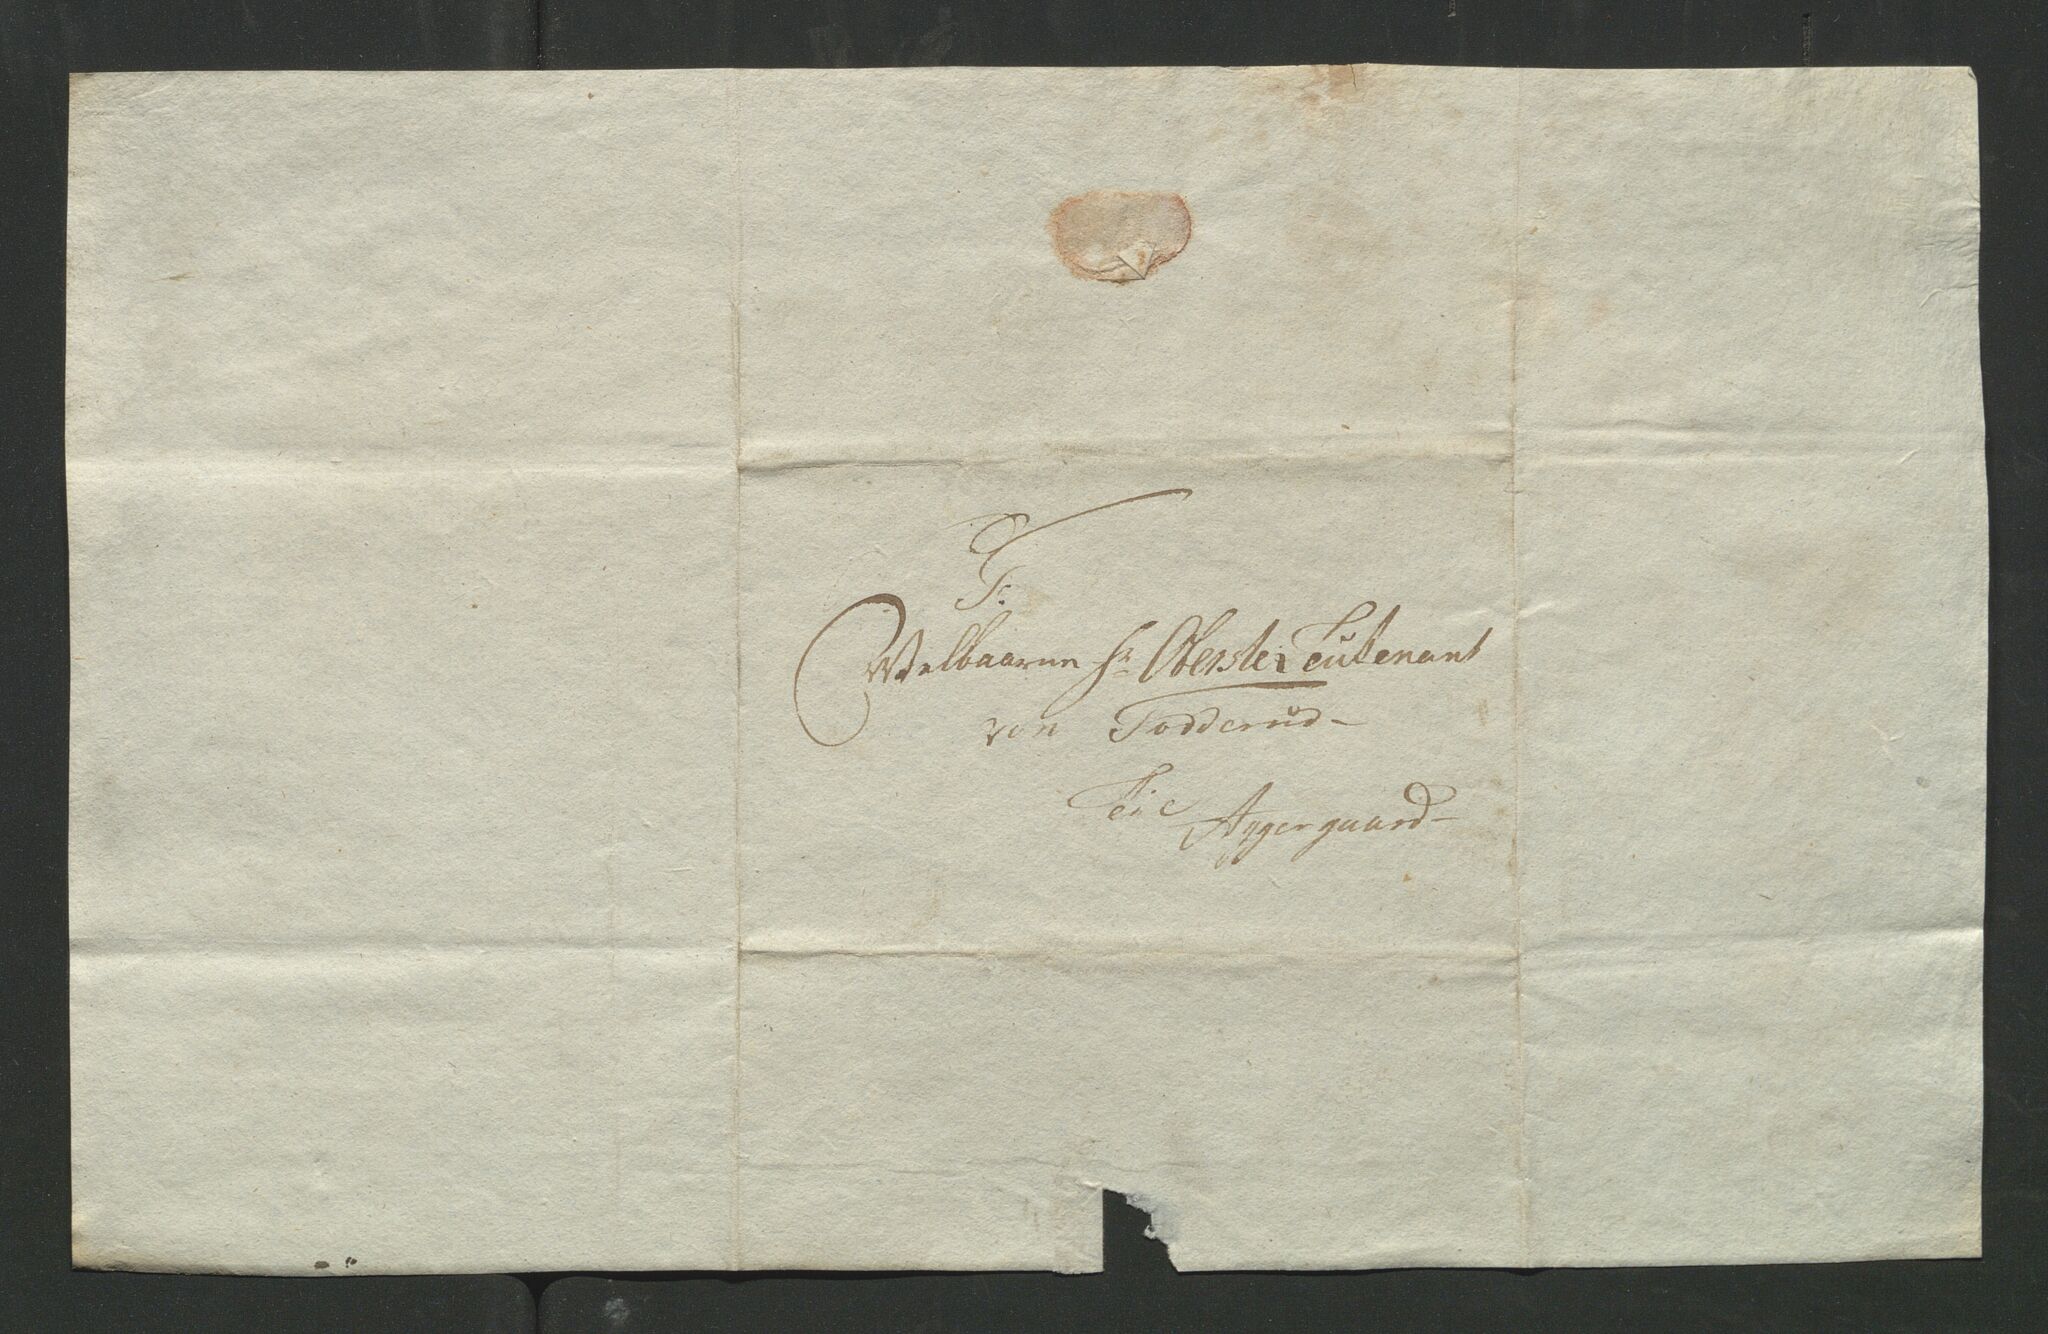 T.
Velbaarne Hr Oberste Leutenant
von Todderud-
Til Aggergaard-